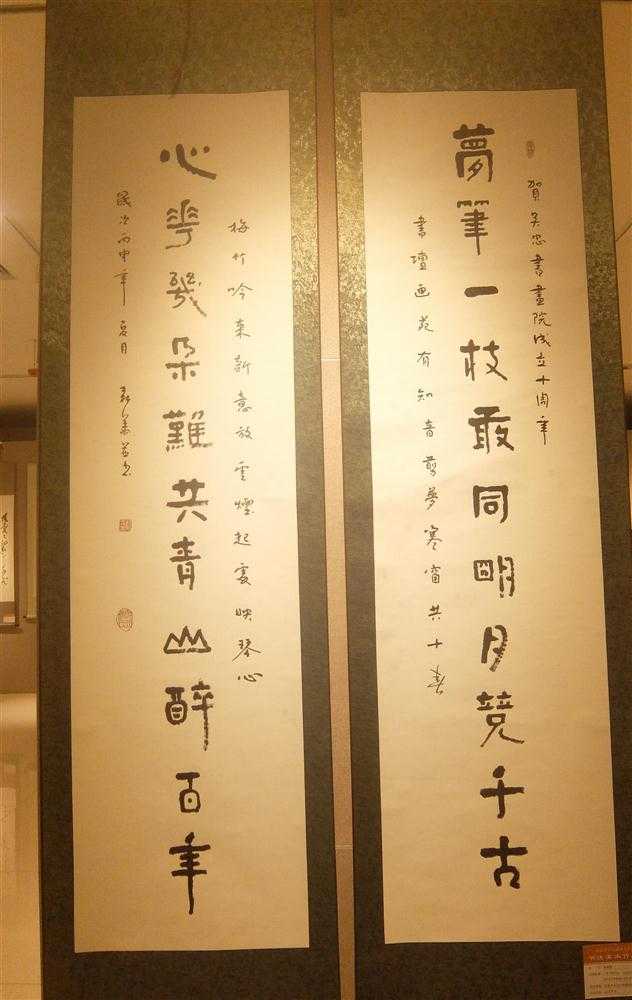 賀吴忠書畫院成立十周年
夢筆一枝敢同明月競千古
書壇画苑有知音剪夢寒窗共十春
梅竹吟来新意放雲煙起處映琴心
心華幾朵難共青山醉百年
歲次丙申年夏月